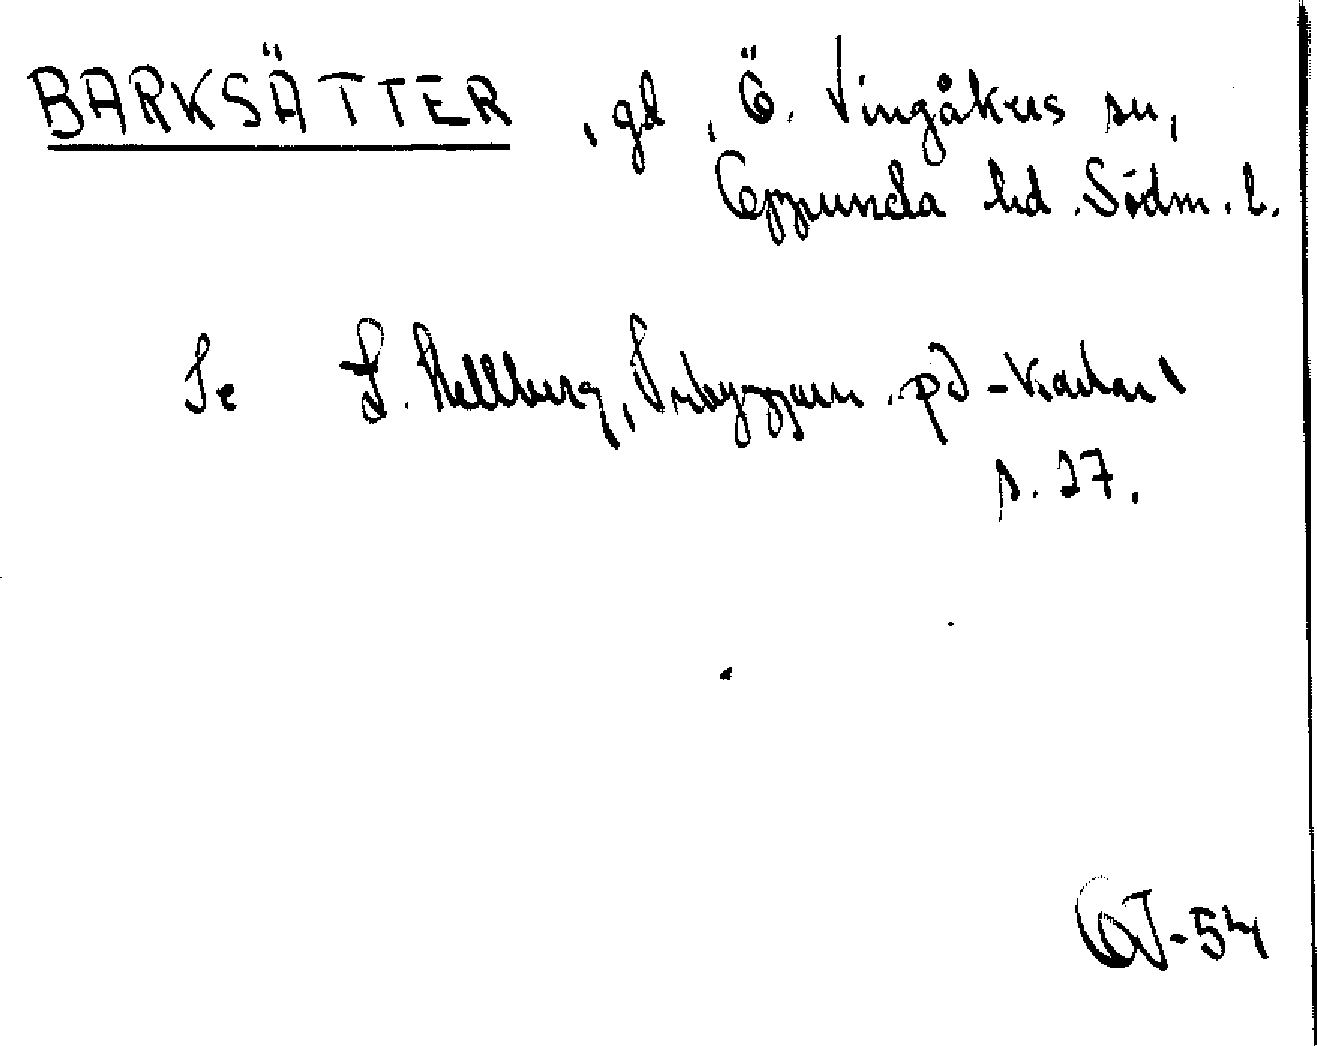 BARKSÄTTER, gd, Ö. Vingåkers sn,
Oppunda hd. Södm. l.
Se L. Hellberg, på-kartan
s. 27.
OJ-54